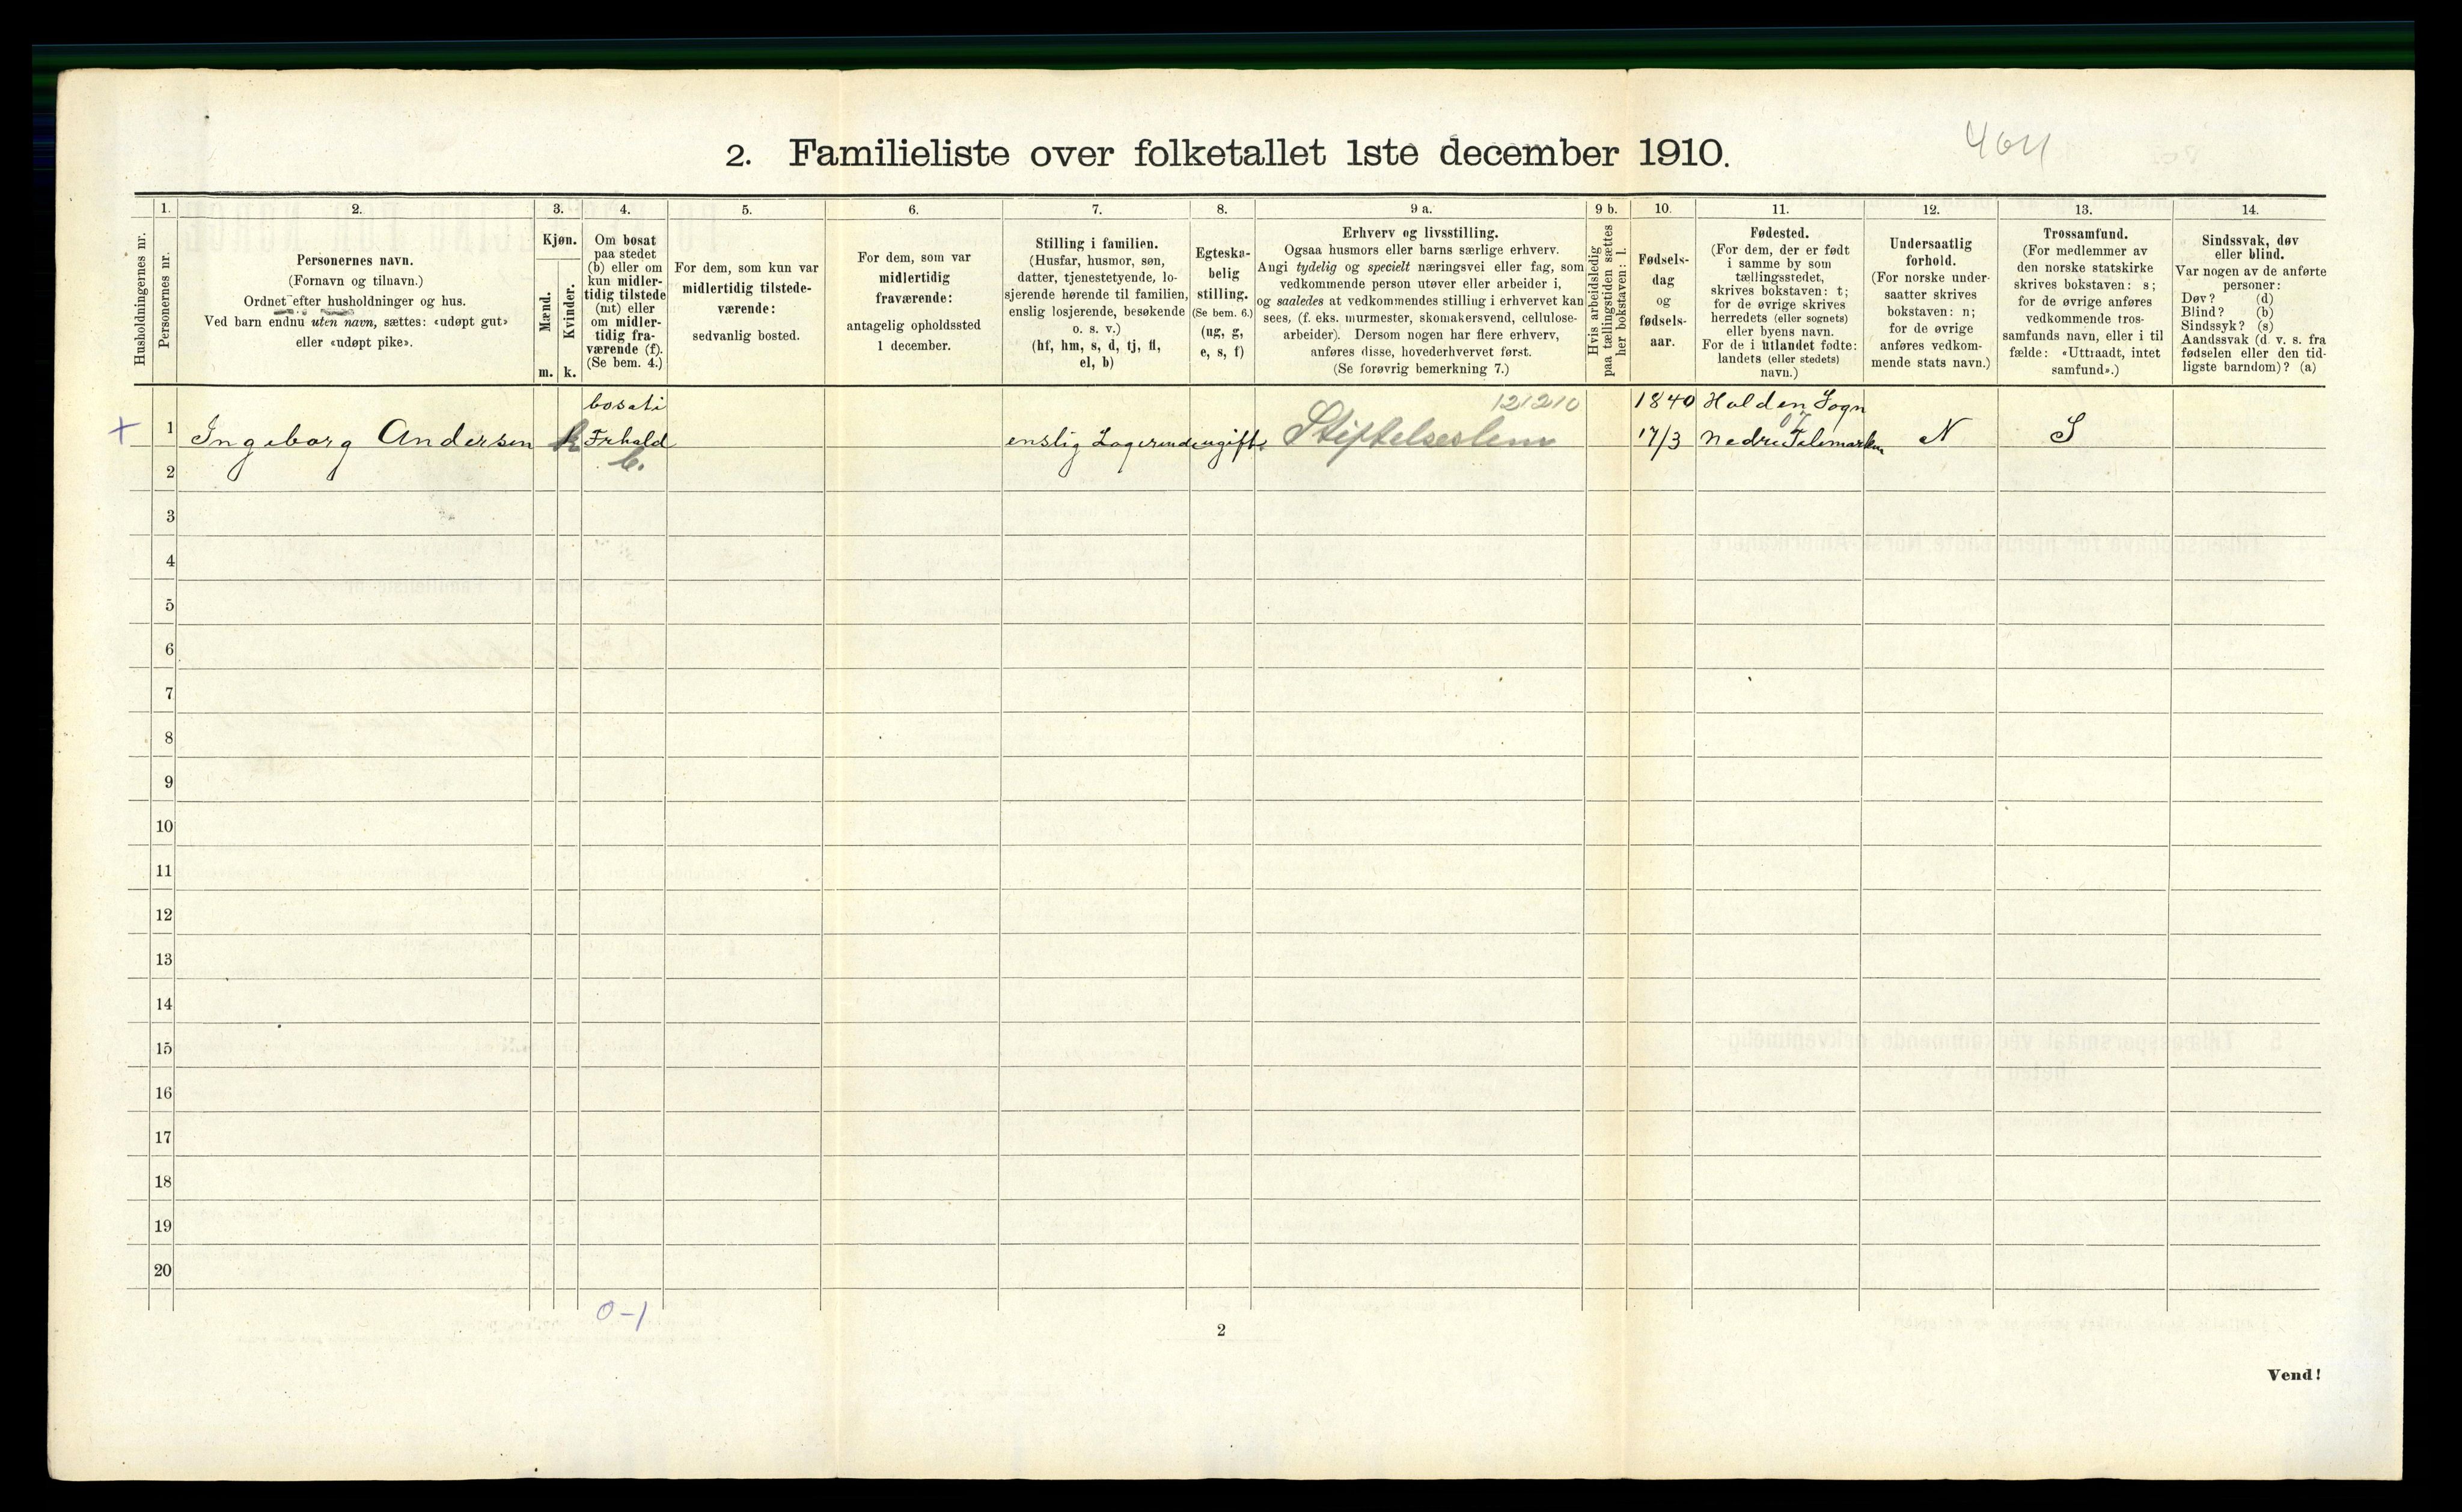 2. Familieliste over folketallet 1ste december 1910.
404
Husholdningernes nr.
1.
Personernes nr.
2.
Personernes navn.
(Fornavn og tilnavn.)
Ordnet efter husholdninger og hus.
Ved barn endnu uten navn, sættes: «udøpt gut»
eller «udøpt pike».
3.
Kjøn.
Mænd.
Kvinder.
m. k.
4.
Om bosat
paa stedet
(b) eller om
kun midler-
tidig tilstede
(mt) eller
om midler-
tidig fra-
værende (f).
(Se bem. 4.)
5.
For dem, som kun var
midlertidig tilstede-
værende:
sedvanlig bosted.
6.
For dem, som var
midlertidig
fraværende:
antagelig opholdssted
1 december.
7.
Stilling i familien.
(Husfar, husmor, søn,
datter, tjenestetyende, lo-
sjerende hørende til familien,
enslig losjerende, besøkende
o. s. v.)
(hf, hm, s, d, tj, fl,
el, b)
8.
Egteska-
belig
stilling.
(Se bem. 6.)
(ug, g,
e, s, f)
9 a.
Erhverv og livsstilling.
Ogsaa husmors eller barns særlige erhverv.
Angi tydelig og specielt næringsvei eller fag, som
vedkommende person utøver eller arbeider i,
og saaledes at vedkommendes stilling i erhvervet kan
sees, (f. eks. murmester, skomakersvend, cellulose-
arbeider). Dersom nogen har flere erhverv,
anføres disse, hovederhvervet først.
(Se forøvrig bemerkning 7.)
9 b.
Hvis arbeidsledig
paa tællingstiden sættes
her bokstaven: l.
10.
Fødsels-
dag
og
fødsels-
aar.
11.
Fødested.
(For dem, der er født
i samme by som
tællingsstedet,
skrives bokstaven: t;
for de øvrige skrives
herredets (eller sognets)
eller byens navn.
For de i utlandet fødte:
landets (eller stedets)
navn.)
12.
Undersaatlig
forhold.
(For norske under-
saatter skrives
bokstaven: n;
for de øvrige
anføres vedkom-
mende stats navn.)
13.
Trossamfund.
(For medlemmer av
den norske statskirke
skrives bokstaven: s;
for de øvrige anføres
vedkommende tros-
samfunds navn, eller i til
fælde: «Uttraadt, intet
samfund».)
14.
Sindssvak, døv
eller blind.
Var nogen av de anførte
personer:
Døv? (d)
Blind? (b)
Sindssyk? (s)
Aandssvak (d. v. s. fra
fødselen eller den tid-
ligste barndom)? (a)
bosati 121210 1840 Holden Sogn
+ 1 Ingeborg Andersen k Frhald enslig Logerende ugift. Stiftelseslem 17/3 Nedre Telemarken N S
2 b.
3
4
5
6
7
8
9
10
11
12
13
14
15
16
17
18
19
20
0-1
2
Vend!